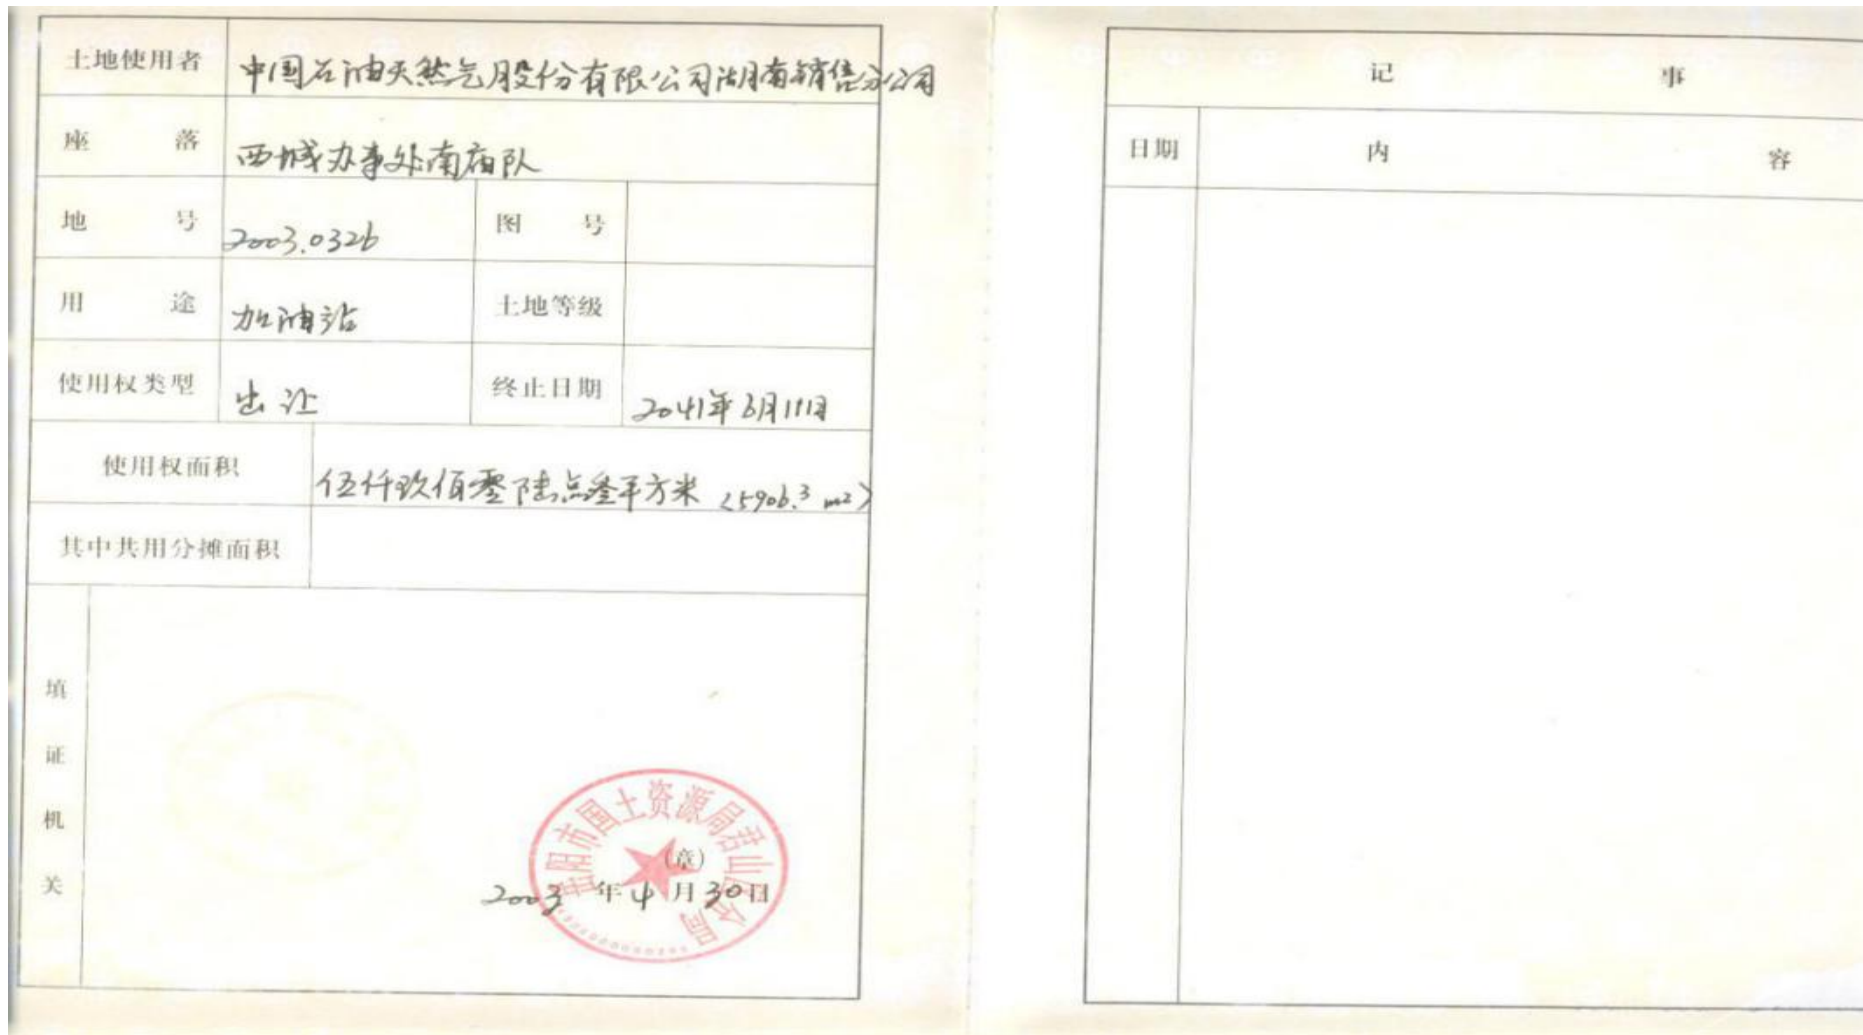 土地使用者 中国石油天然气股份有限公司湖南销售分公司
座 落 西城办事处南庙队
地 号 2003.0326 图 号
用 途 加油站 土地等级
使用权类型 出让 终止日期 2041年6月11日
使用权面积 伍仟玖佰零陆点叁平方米 (5906.3 m²)
其中共用分摊面积
填证机关
岳阳市国土资源局君山区分局
(章)
2003年4月30日
记 事
日期 内 容